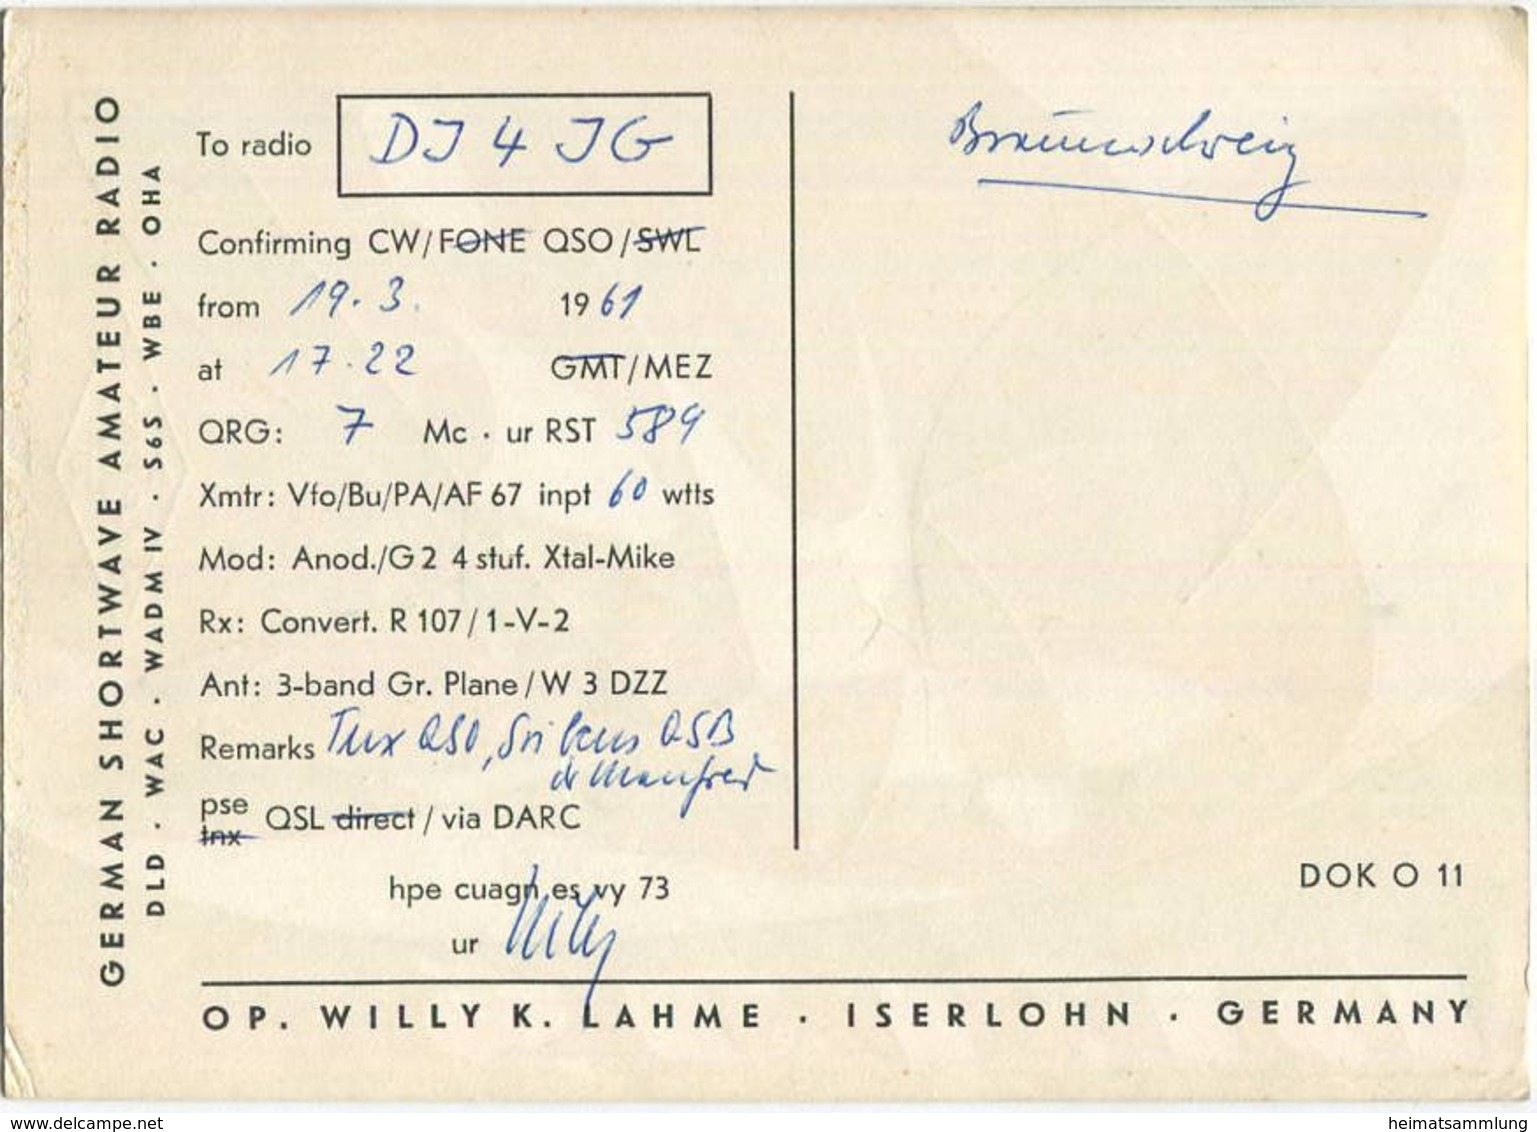 GERMAN SHORTWAVE AMATEUR RADIO
DLD · WAC · WADM IV · S6S · WBE · OHA
To radio DJ 4 JG
Confirming CW/FONE QSO/SWL
from 19.3. 1961
at 17.22 GMT/MEZ
QRG: 7 Mc · ur RST 589
Xmtr: Vfo/Bu/PA/AF 67 inpt 60 wtts
Mod: Anod./G 2 4 stuf. Xtal-Mike
Rx: Convert. R 107/1-V-2
Ant: 3-band Gr. Plane/W 3 DZZ
Remarks Tnx QSO, Sri QSB
dr Manfred
pse
tnx QSL direct / via DARC
hpe cuagn es vy 73
ur Willy
Braunschweig
DOK O 11
OP. WILLY K. LAHME · ISERLOHN · GERMANY
www.delcampe.net
heimatsammlung